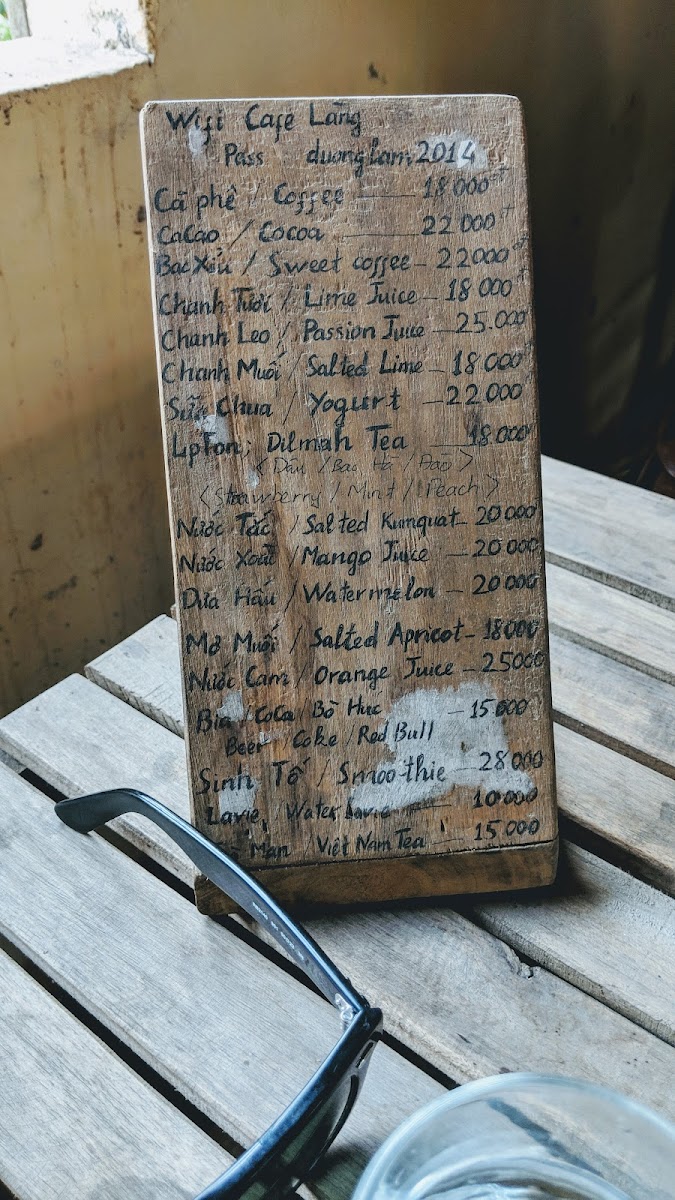 Wifi Café Làng
Pass duonglam2014
Cà phê / Coffee 18 000đ
CaCao / Cocoa 22 000đ
Bạc Xỉu / Sweet coffee 22000đ
Chanh Tươi / Lime Juice 18 000đ
Chanh Leo / Passion Juice 25.000đ
Chanh Muối / Salted Lime 18 000
Sữa Chua / Yogurt 22 000
LpTon; Dilmah Tea 18 000
< Dâu / Bạc Hà / Đào >
< Strawberry / Mint / Peach >
Nước Tắc / Salted Kumquat 20 000
Nước Xoài / Mango Juice 20 000
Dưa Hấu / Watermelon 20 000
Mơ Muối / Salted Apricot 18000
Nước Cam / Orange Juice 25000
Bia / CoCa / Bò Húc 15 000
Beer / Coke / Red Bull
Sinh Tố / Smoothie 28 000
Lavie, Water Lavie 10 000
Mạn Việt Nam Tea 15 000